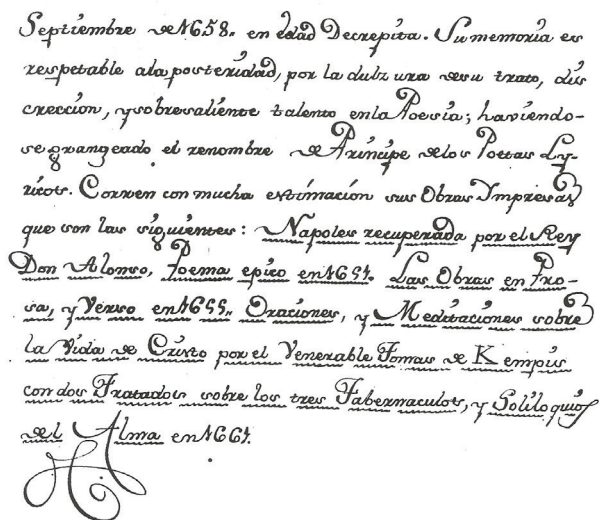 Septiembre de 1658. en edad Decrepita. Su memoria es
respetable ala posteridad, por la dulzura desu trato, dis
crección, y sobresaliente talento enla Poesia; haviendo-
se grangeado el renombre de Principe delos Poetas Ly-
ricos. Corren con mucha estimación sus Obras Impresas
que son las siguientes: Napoles recuperada por el Rey
Don Alonso, Poema epico en 1651. Las Obras en Pro-
sa, y Verso en 1655. Oraciones, y Meditaciones sobre
la Vida de Cristo por el Venerable Tomas de Kempis
con dos Tratados sobre los tres Tabernaculos, y Soliloquios
del Alma en 1661.